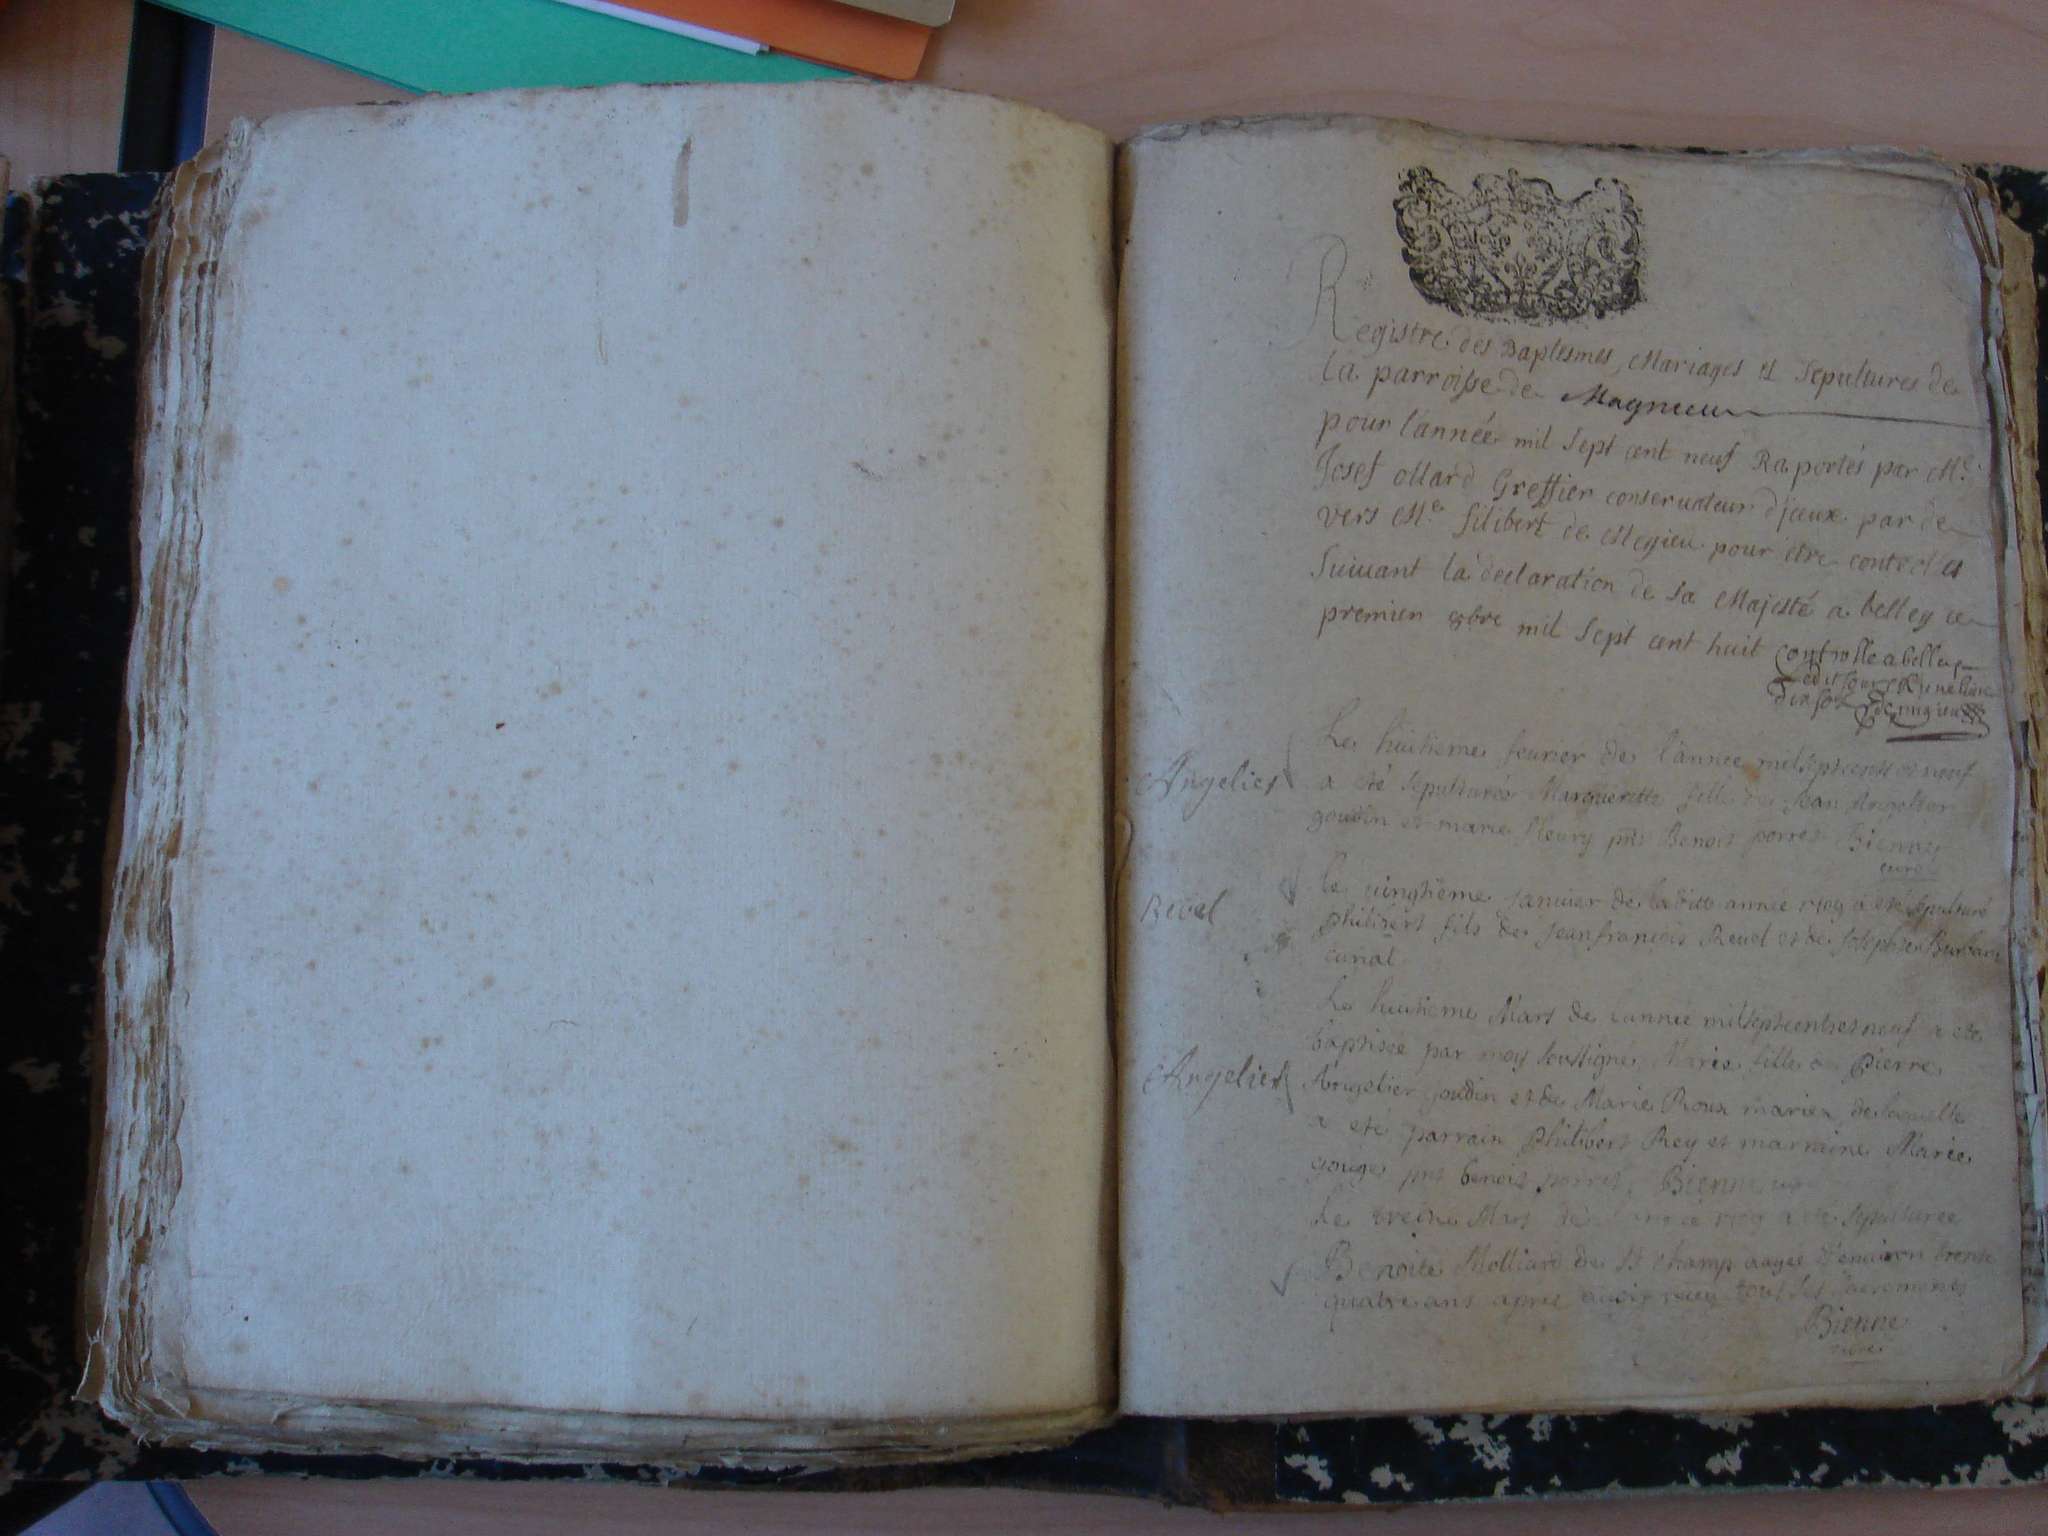 Registre des Baptesmes, Mariages et Sepultures de
la parroisse de Magnieu
pour l'année mil sept cent neuf Raportés par Me
Josef ollard Greffier conservateur d'jceux par de
vers Me filibert de Megieu pour être contollés
suivant la declaration de sa Majesté a belley ce
premier 9bre mil sept cent huit controlle a belley
Le huitieme fevrier de l'annee mil sept cents et neuf
Angelier
a eté sepulturée Margueritte fille de Jean Angelier
goudin et marie fleury pnt Benoit porret Bienne
curé
le vingtieme janvier de laditte année 1709 a eté sepulturé
Revel
philibert fils de jean francois Revel et de Josephte
curial
Le huitieme Mars de l'année mil sept cents et neuf a ete
baptisée par moy soussigné Marie fille a Pierre
Angelier
Angelier goudin et de Marie Roux mariez de laquelle
a eté parrain Philibert Rey et marraine Marie
gouge pnt benoit porret, Bienne curé
Le treize Mars de l'année 1709 a eté sepulturée
Benoite Molliard de St champ aagée d'environ trente
quatre ans apres avoir receu tous les sacremens
Bienne
curé